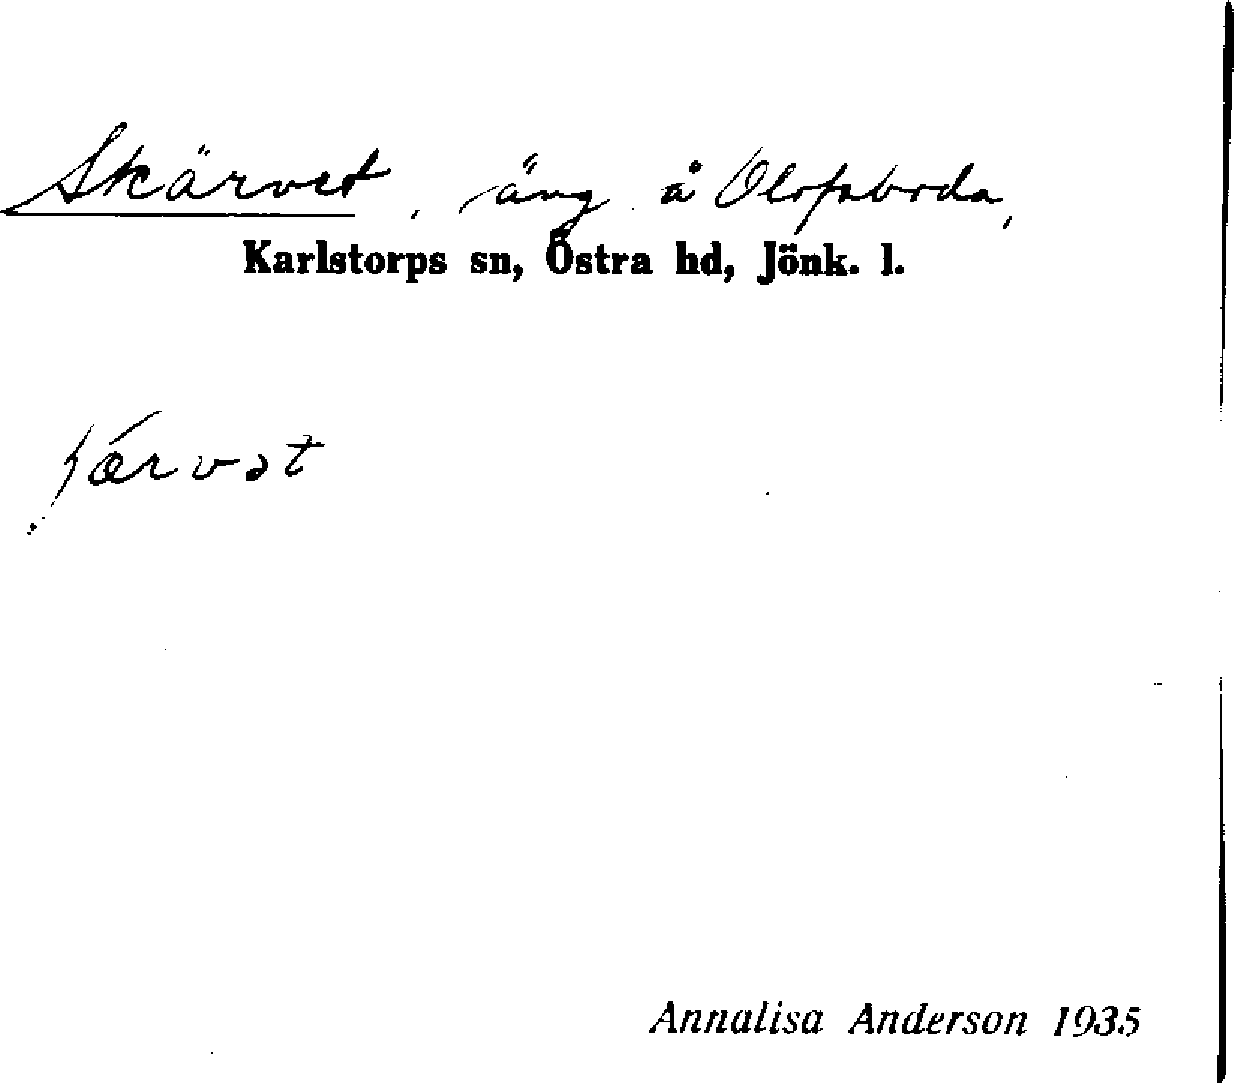 Skärvet, äng å Olofsboda,
Karlstorps sn, Östra hd, Jönk. l.
ʃærvət
Annalisa Anderson 1935